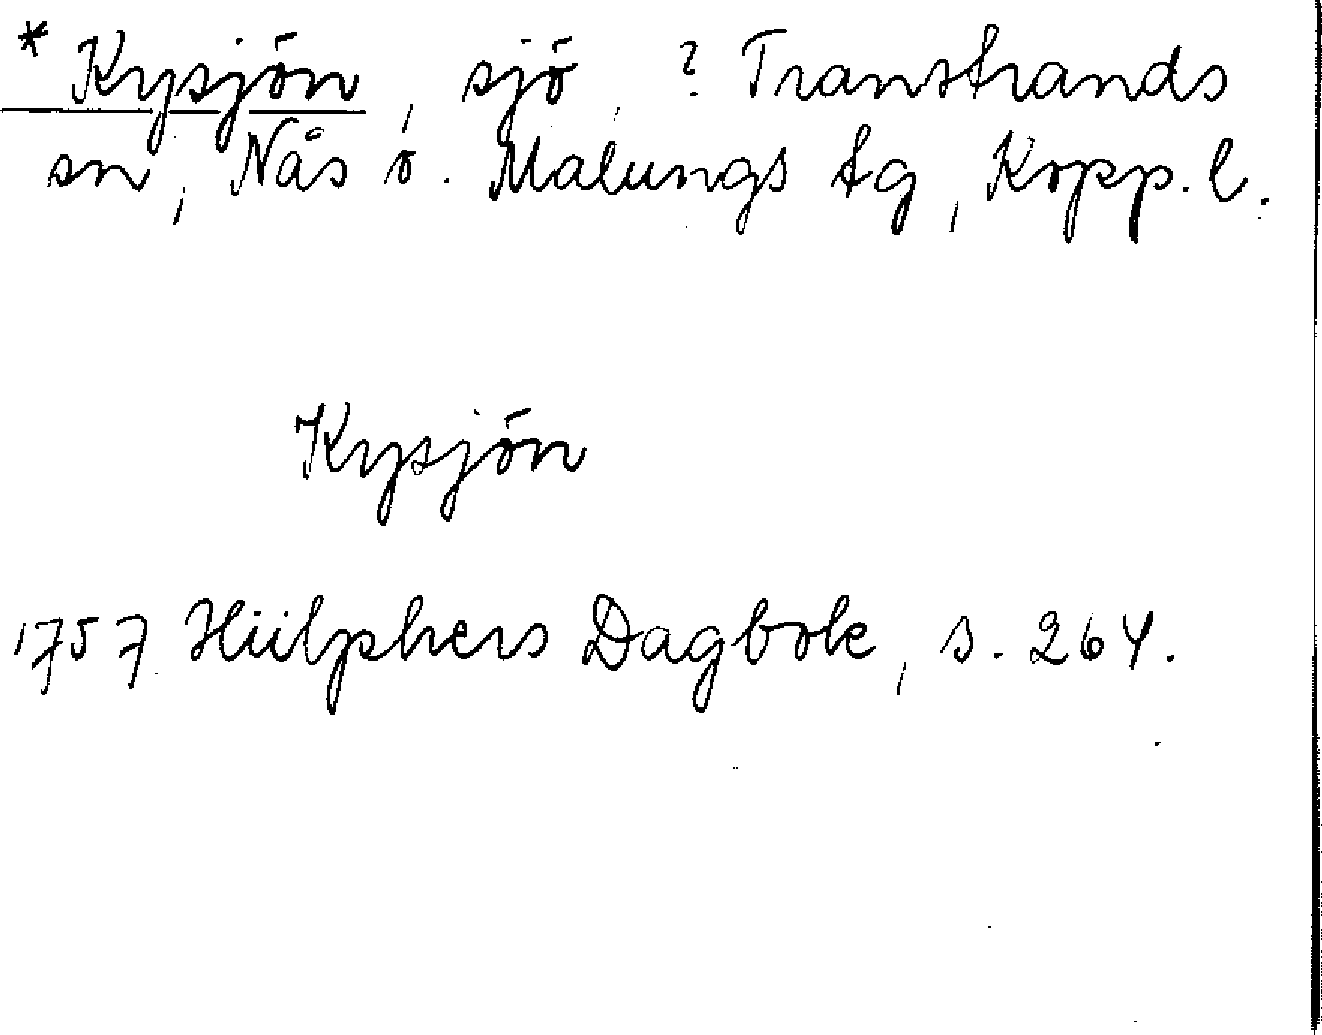 * Kysjön, sjö, ? Transtrands
sn, Nås o. Malungs tg, Kopp. l.
Kysjön
1757 Hülphers Dagbok, s. 264.